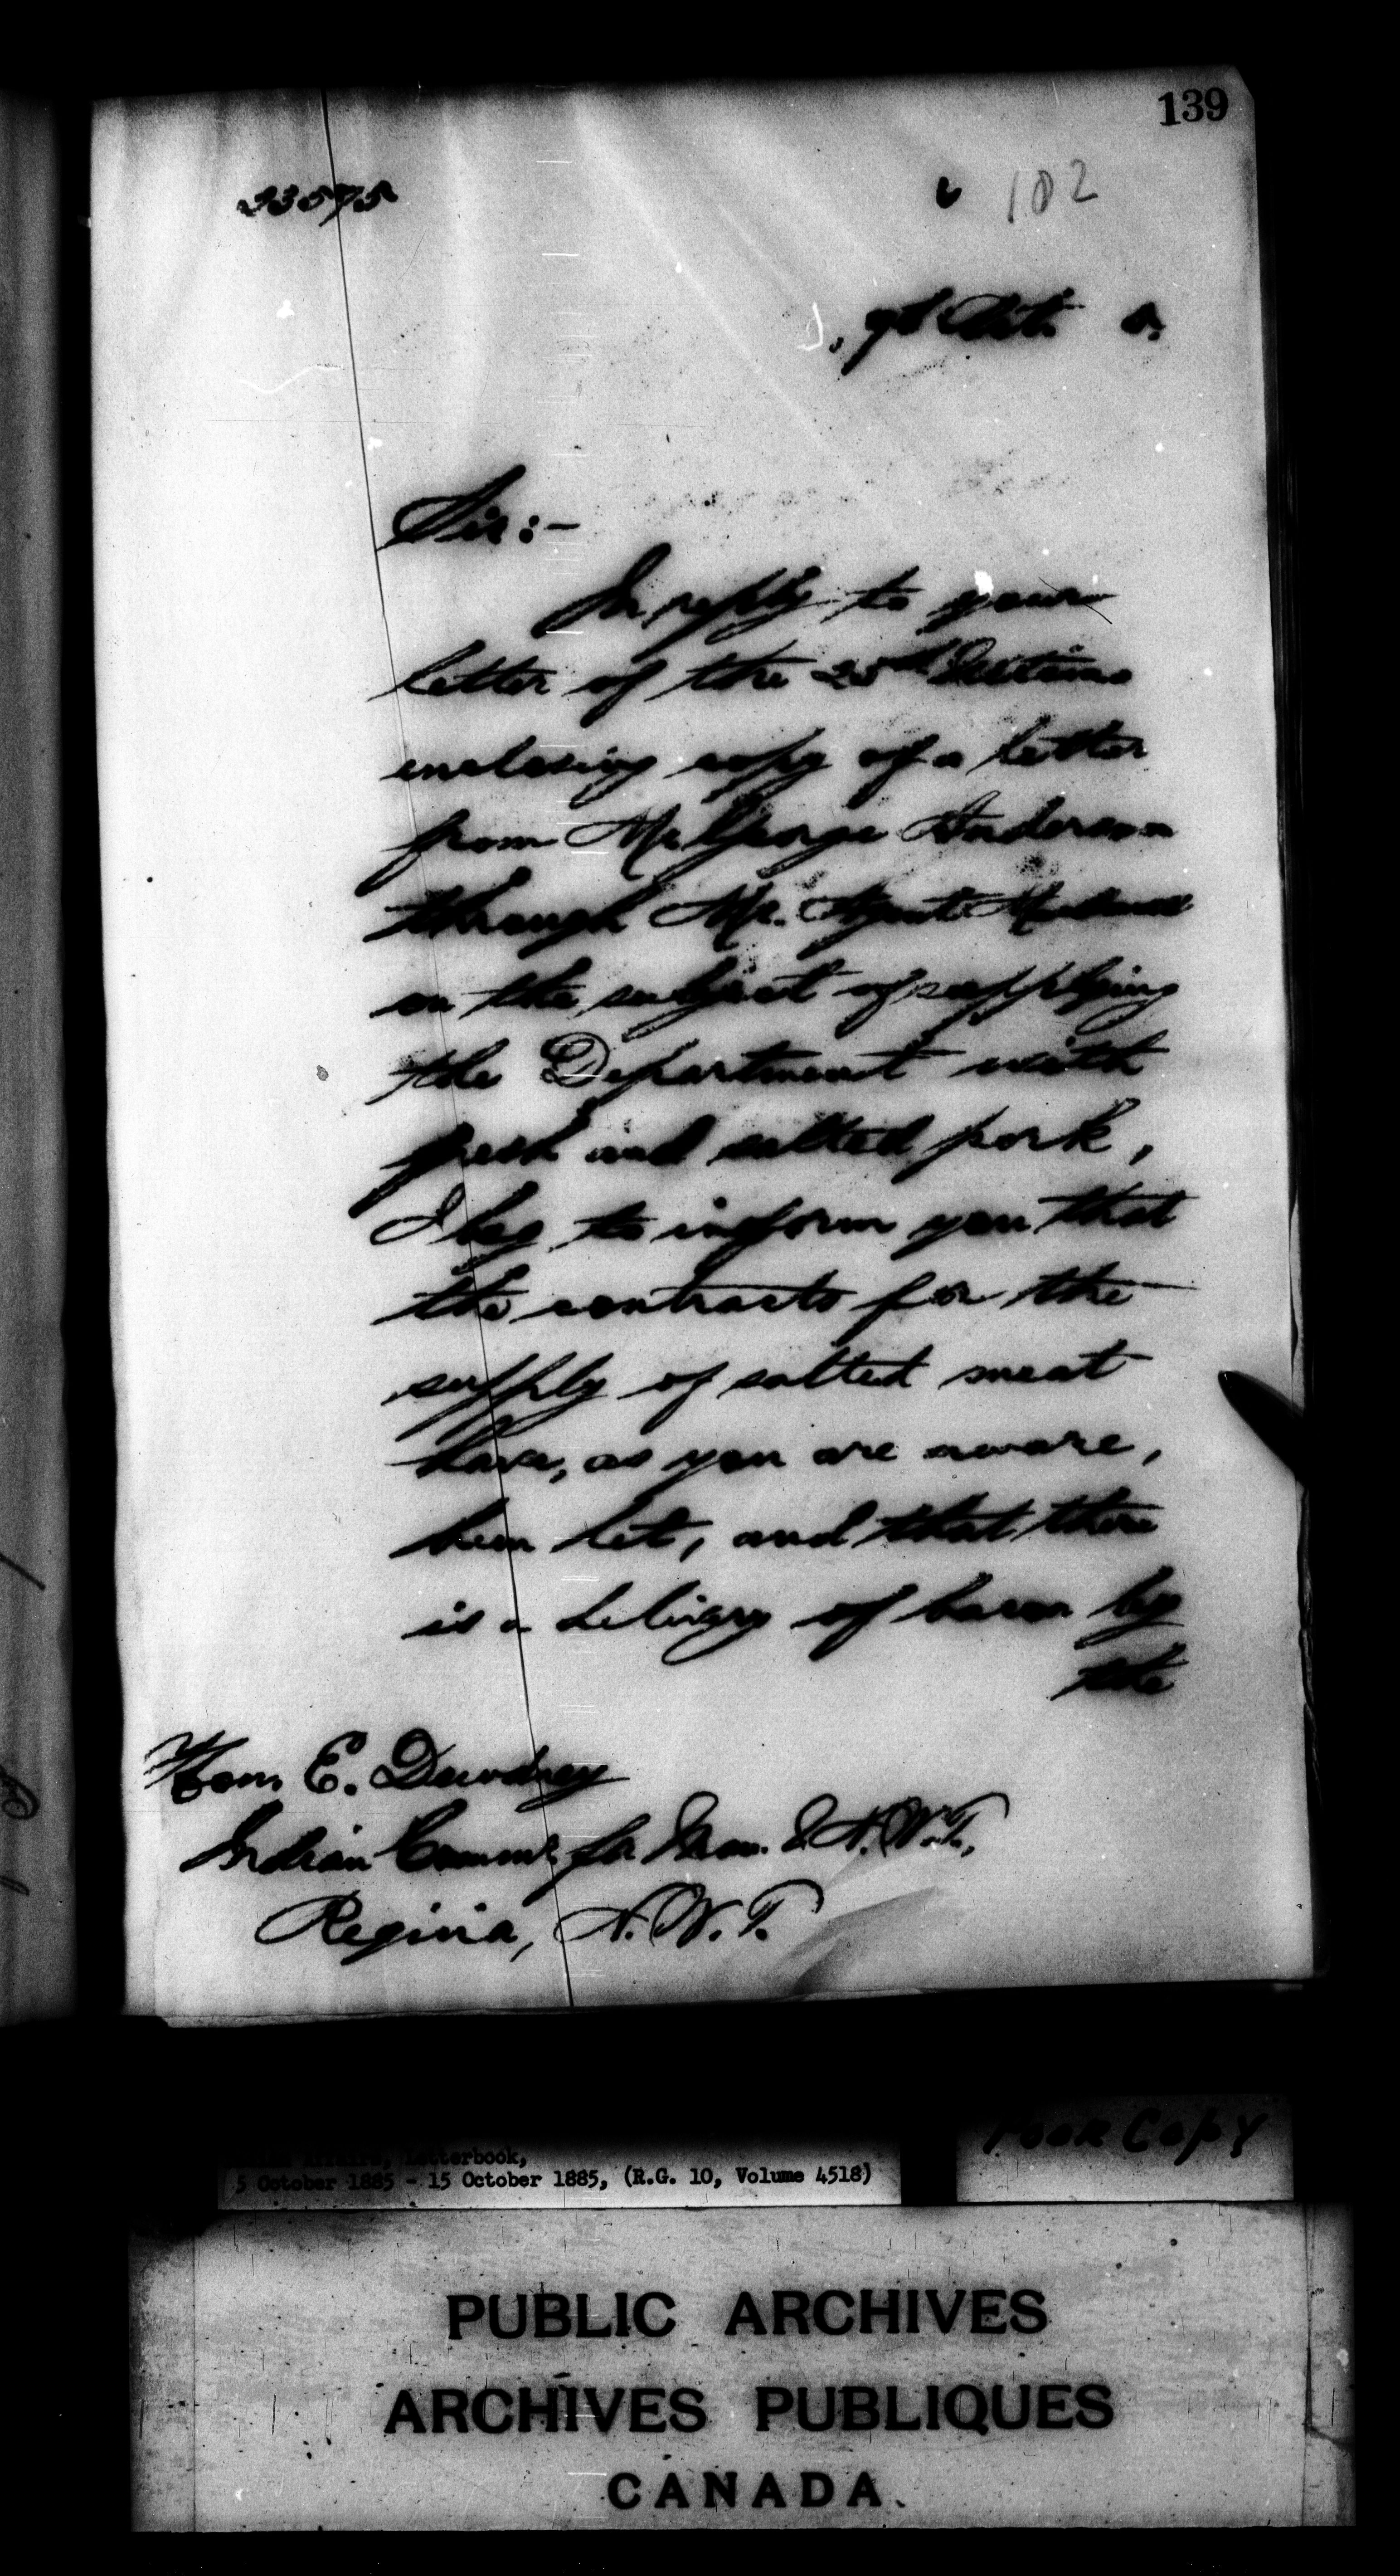 139
23575
182
9th Oct. 5.
Sir:-
In reply to your
letter of the 25th
enclosing copy of a letter
from Mr George Anderson
through Mr. Agent
on the subject of supplying
the Department with
fresh and salted pork,
I beg to inform you that
the contracts for the
supply of salted meat
have, as you are aware,
been let, and that there
is a delivery of bacon by
the
Hon. E. Dewdney
Indian Commr for Man. & N.W.T.,
Regina, N.W.T.
Poor Copy
Letterbook,
5 October 1885 - 15 October 1885, (R.G. 10, Volume 4518)
PUBLIC ARCHIVES
ARCHIVES PUBLIQUES
CANADA